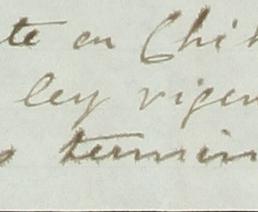 te en Chih
ley vigen
s termin